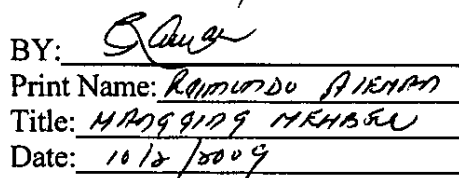 BY:
Print Name: Raimundo Aleman
Title: Managing Member
Date: 10/2/2009